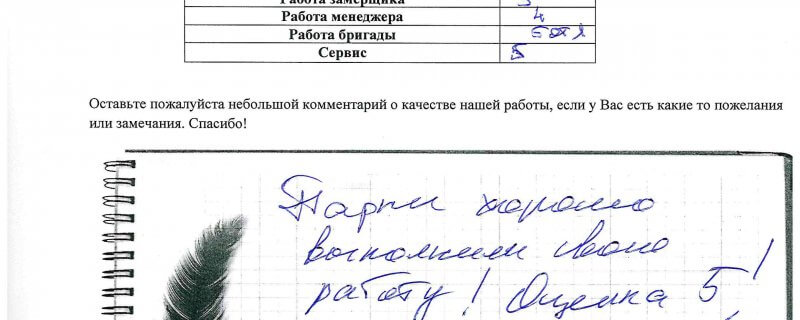 Работа замерщика 5
Работа менеджера 4
Работа бригады 5
Сервис 5
Оставьте пожалуйста небольшой комментарий о качестве нашей работы, если у Вас есть какие то пожелания
или замечания. Спасибо!
Парни хорошо
выполнили свою
работу! Оценка 5!